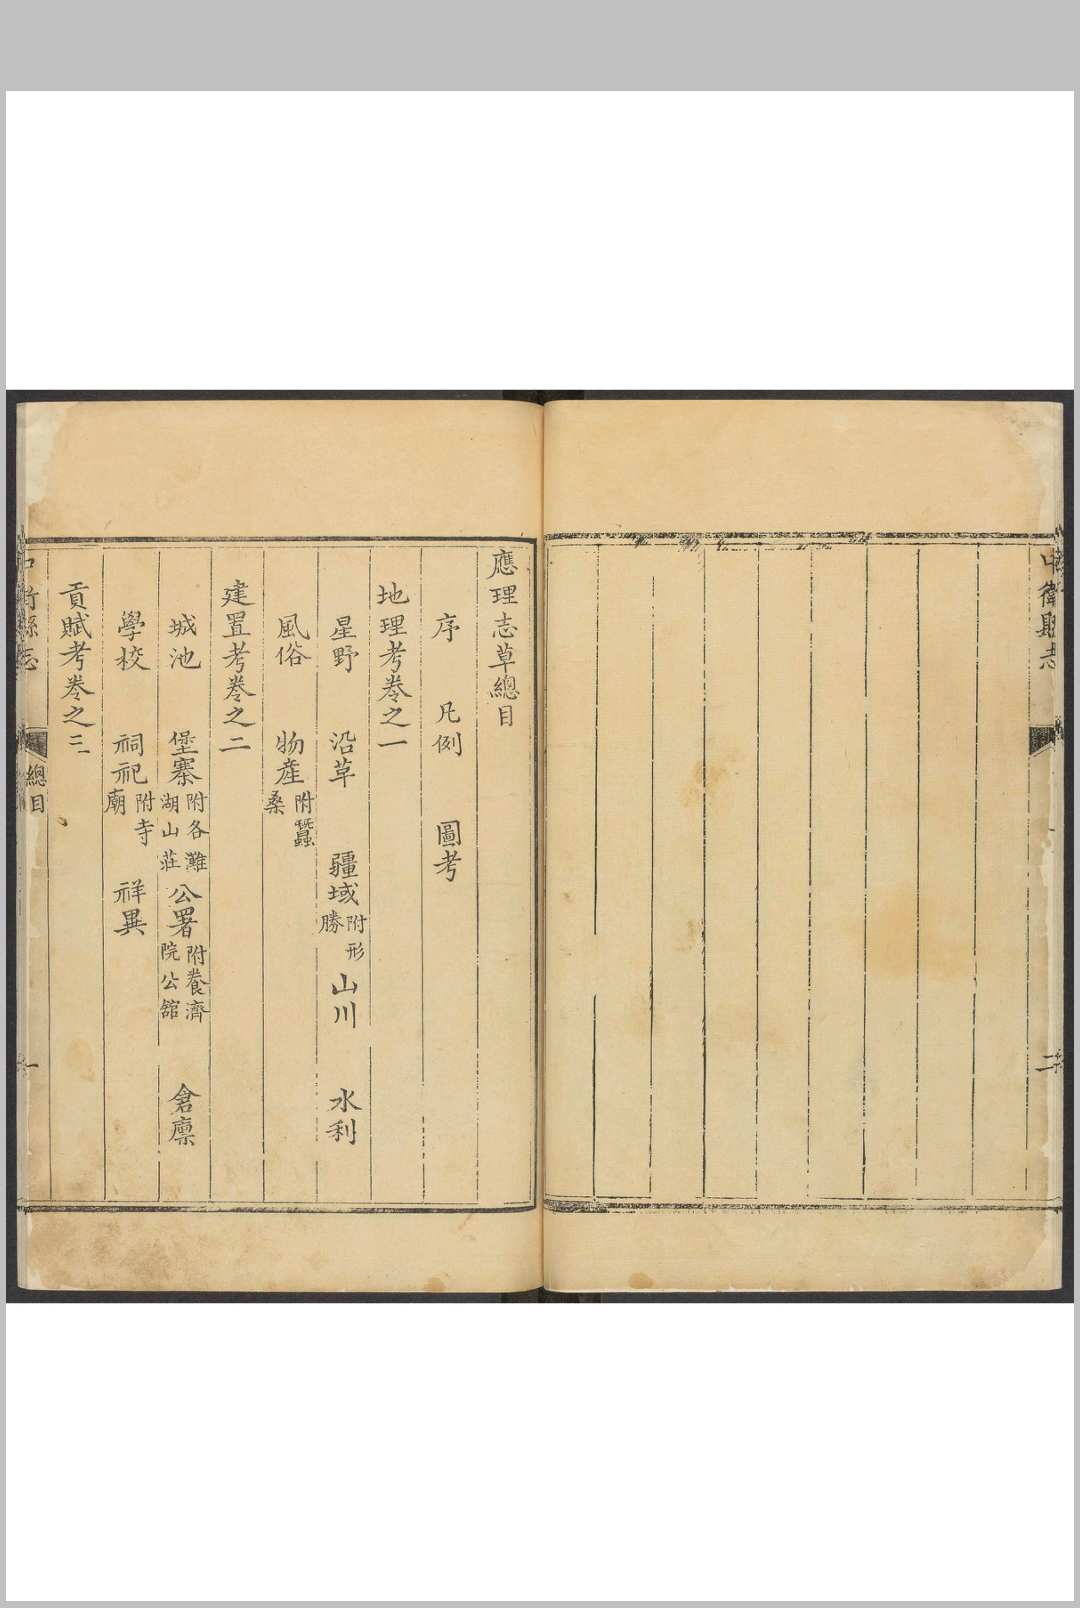 中衛縣志
二
應理志草總目
序 凡例 圖考
地理考卷之一
星野 沿革 疆域附形勝 山川 水利
風俗 物產附蠶桑
建置考卷之二
城池 堡寨附各灘湖山莊 公署附養濟院公舘 倉廪
學校 祠祀附寺廟 祥異
貢賦考卷之三
中衛縣志
總目
一